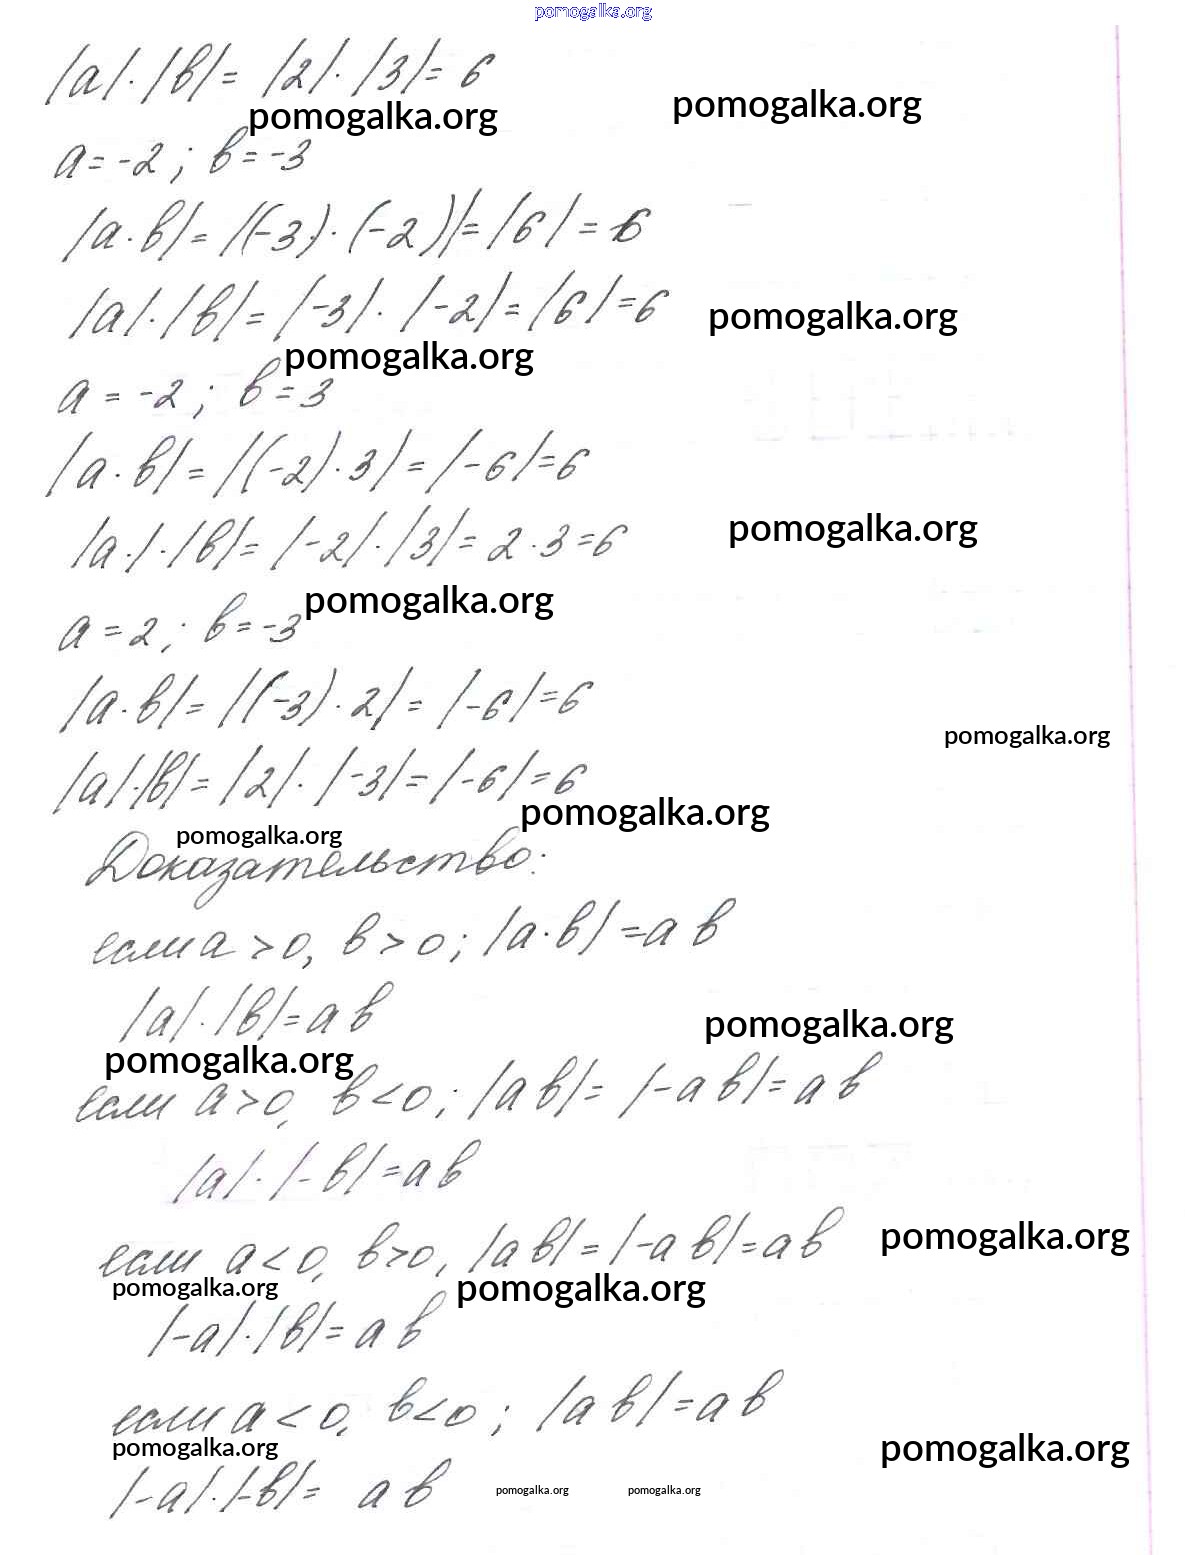 pomogalka.org
|a|·|b| = |2|·|3| = 6
pomogalka.org pomogalka.org
a = -2 ; b = -3
|a·b| = |(-3)·(-2)| = |6| = 6
|a|·|b| = |-3|·|-2| = |6| = 6
pomogalka.org
pomogalka.org
a = -2 ; b = 3
|a·b| = |(-2)·3| = |-6| = 6
|a·|·|b| = |-2|·|3| = 2·3 = 6
pomogalka.org
pomogalka.org
a = 2 ; b = -3
|a·b| = |(-3)·2| = |-6| = 6
pomogalka.org
|a|·|b| = |2|·|-3| = |-6| = 6
pomogalka.org
pomogalka.org
Доказательство:
если a > 0, b > 0 ; |a·b| = a b
|a|·|b| = a b
pomogalka.org
pomogalka.org
если a > 0, b < 0 ; |a b| = |-a b| = a b
|a|·|-b| = a b
если a < 0, b > 0, |a b| = |-a b| = a b
pomogalka.org
pomogalka.org pomogalka.org
|-a|·|b| = a b
если a < 0, b < 0 ; |a b| = a b
pomogalka.org pomogalka.org
|-a|·|-b| = a b
pomogalka.org pomogalka.org